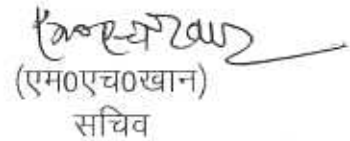 (एम0एच0खान)
सचिव